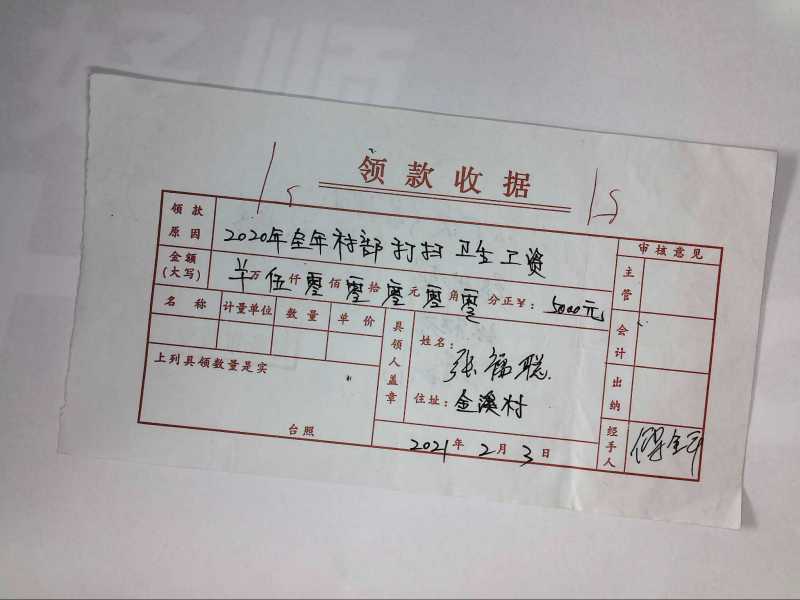 领款收据
领款原因 2020年全年村部打扫卫生工资
审核意见
金额(大写) 万伍仟零佰零拾零元零角零分正¥: 5000元
主管
名称 计量单位 数量 单价
具领人盖章
姓名: 张福聪
会计
上列具领数量是实
住址: 金溪村
出纳
台照
2021年2月3日
经手人